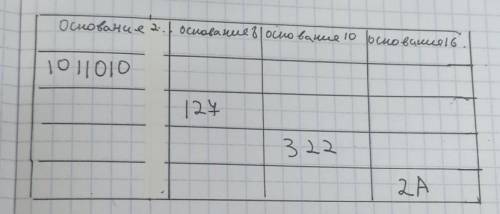 Основание 2. основание 8 основание 10 основание 16.
1011010
127
322
2A